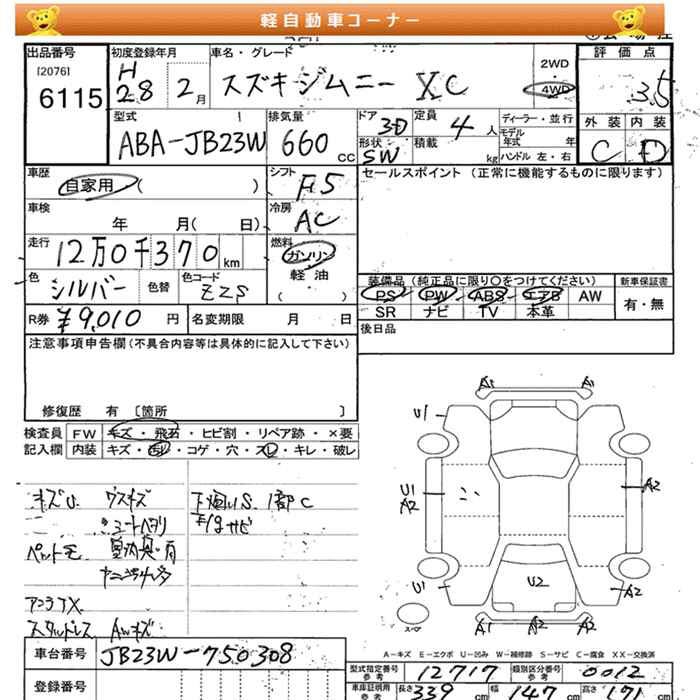 軽自動車コーナー
出品番号 初度登録年月 車名・グレード 2WD 評価点
[2076] 6115 H28 2月 スズキジムニー XC 4WD 3.5
型式 排気量 ドア 3D 定員 4人 ディーラー・並行 外装 内装
ABA-JB23W 660cc 形状 SW 積載 kg モデル年式 年 C D
ハンドル 左・右
車歴 シフト セールスポイント (正常に機能するものに限ります)
自家用 ( ) F5
車検 冷房
年 月( 日) AC
走行 燃料
12万0千370km ガソリン
軽・油
( )
色 色替 色コード 装備品 (純正品に限り○をつけてください) 新車保証書
シルバー Z2S PS PW ABS エアB AW 有・無
SR ナビ TV 本革
R券 ¥9,010円 名変期限 月 日 後日品
注意事項申告欄(不具合内容等は具体的に記入して下さい)
修復歴 有 〔箇所 〕
検査員 FW キズ・飛石・ヒビ割・リペア跡・×要
記入欄 内装 キズ・汚レ・コゲ・穴・スレ・キレ・破レ
A1 A1
U1
キズU. ウスキズ 下廻りS. 1部C
U1 A2 A2
シートヘタリ サビ
ペット毛. 室内
U2
U1 A2
アコラTX.
スペア
スタッドレス AWキズ A1 A2 A2
車台番号 JB23W-750308
A-キズ E-エクボ U-凹み W-補修跡 S-サビ C-腐食 XX-交換済
登録番号 型式指定番号参考 12717 類別区分番号参考 0012
車庫証明用参考 長さ 339cm 幅 147cm 高さ 171cm